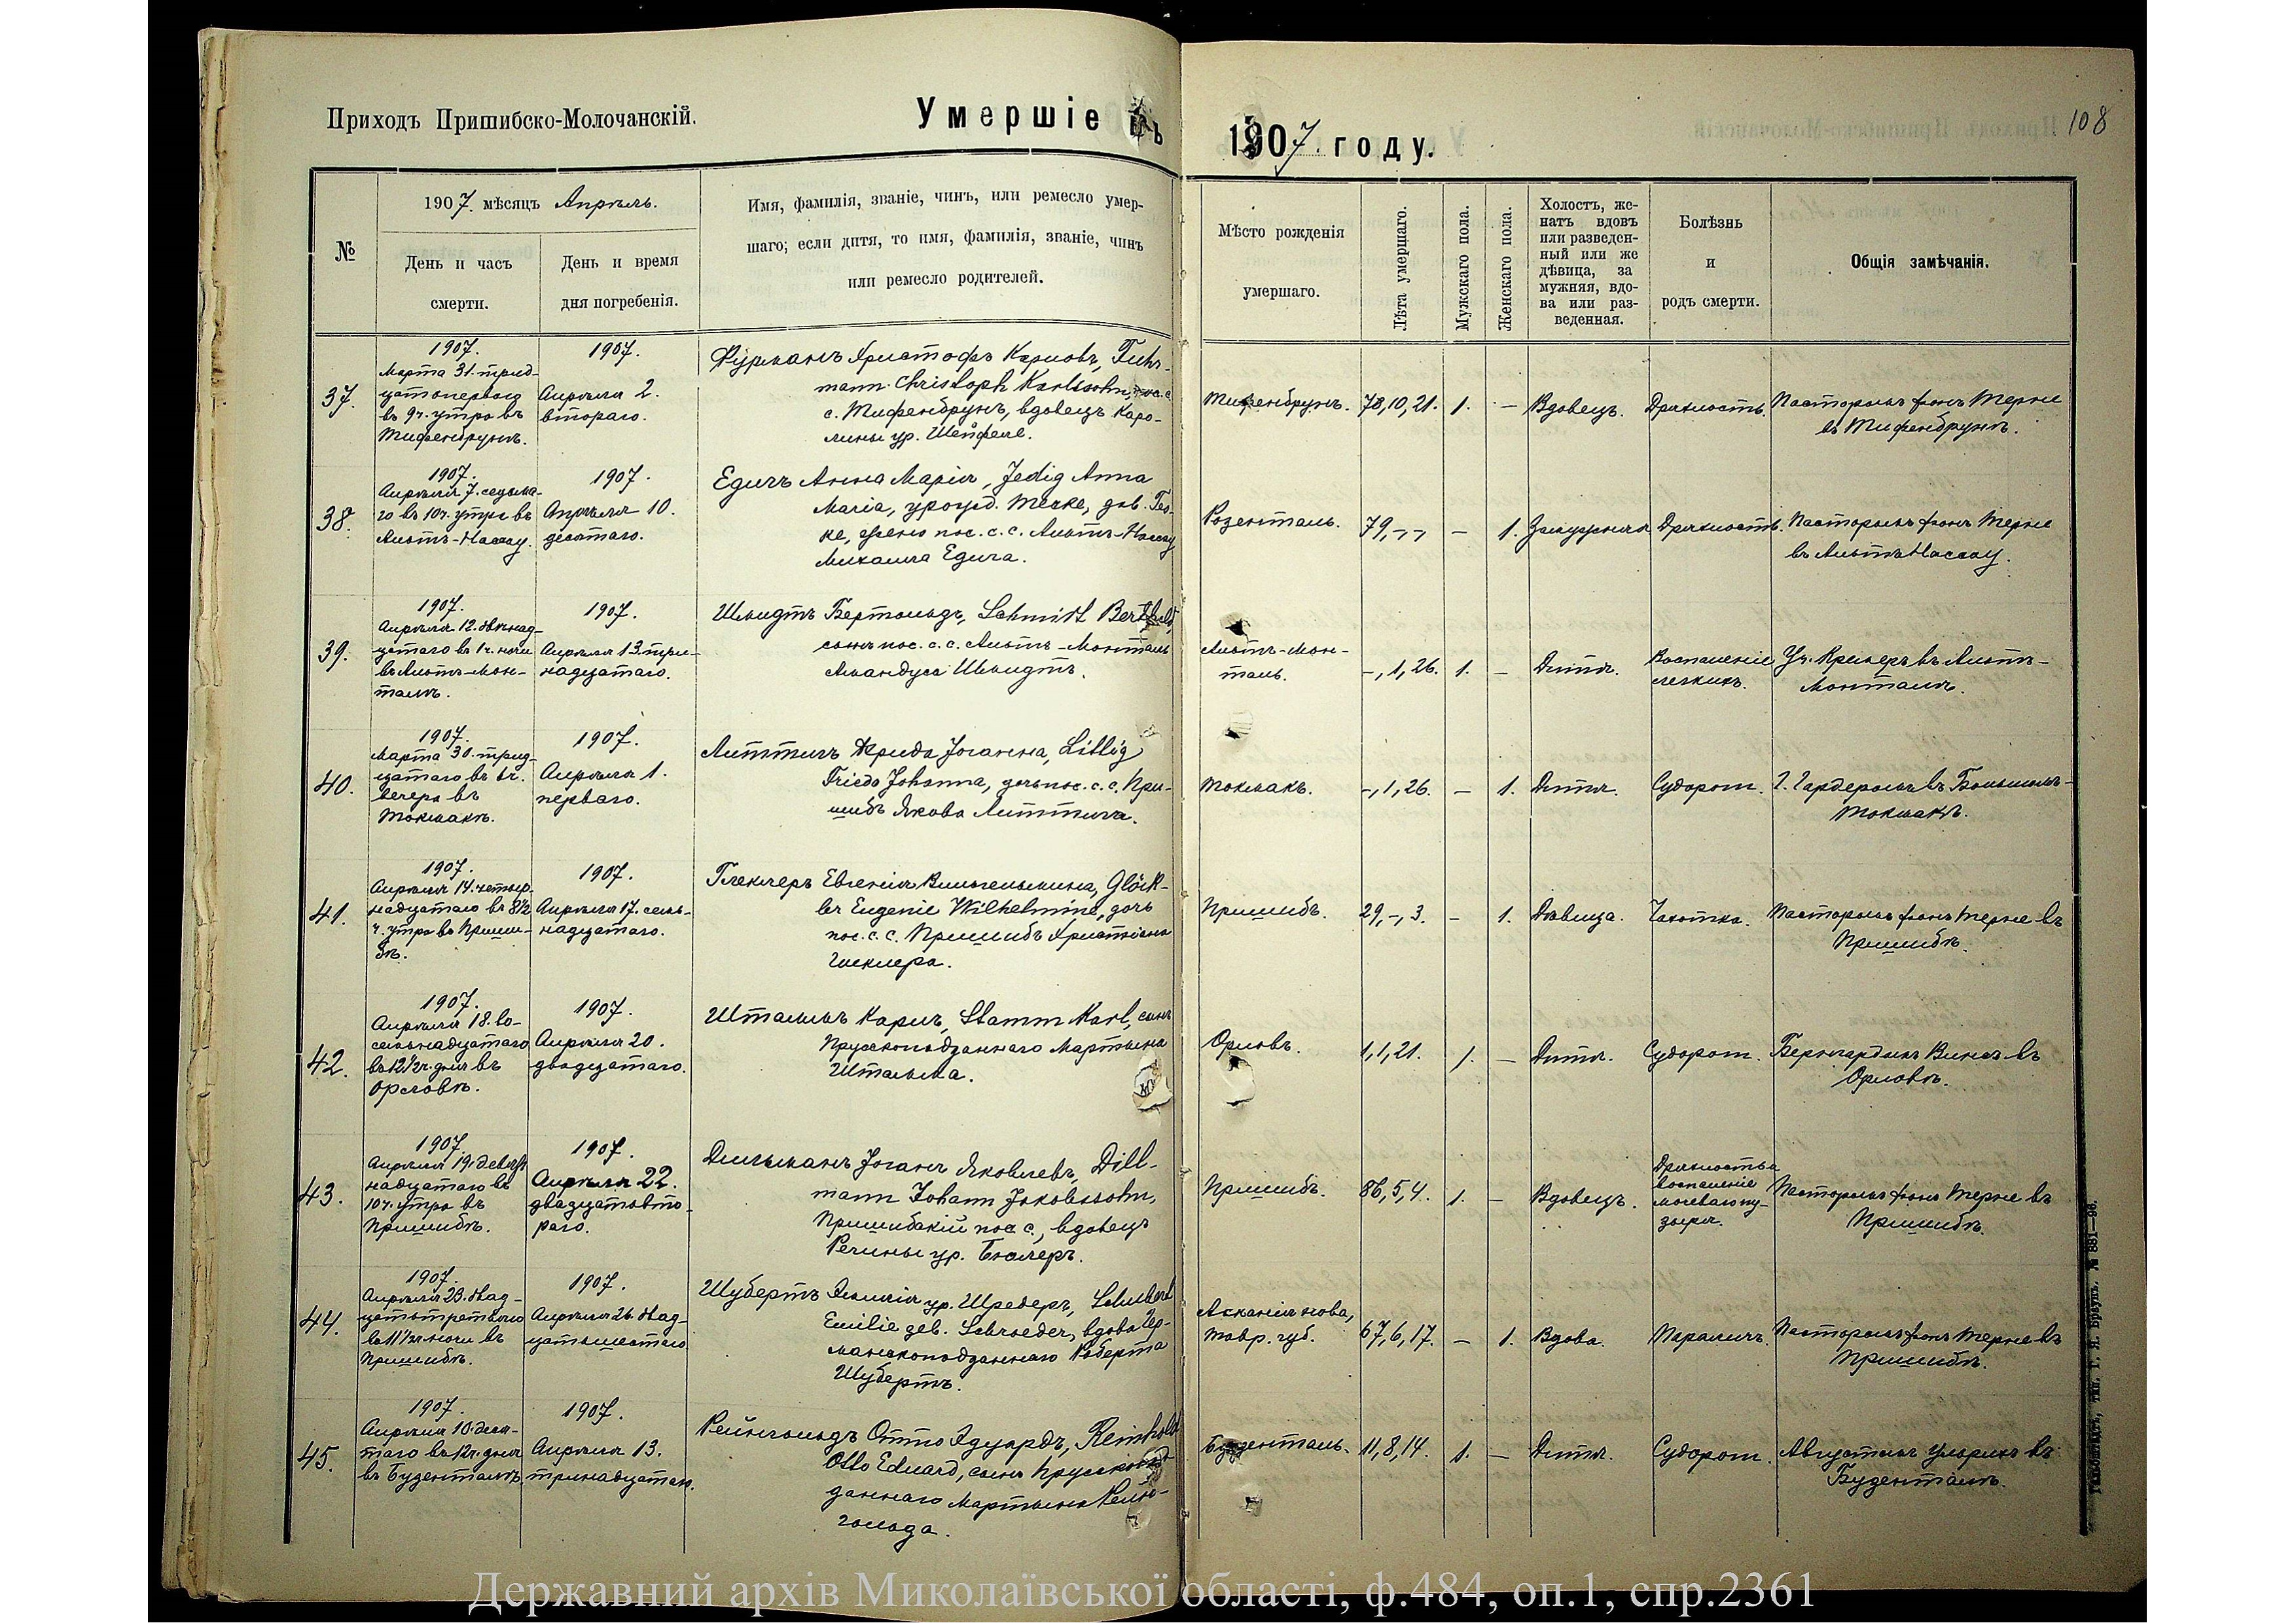 Приходъ Пришибско-Молочанскій.
Умершіе въ
1907 году.
108
№
1907. мѣсяцъ Апрѣль.
День и часъ
смерти.
День и время
дня погребенія.
Имя, фамилія, званіе, чинъ, или ремесло умер-
шаго; если дитя, то имя, фамилія, званіе, чинъ
или ремесло родителей.
Мѣсто рожденія
умершаго.
Лѣта умершаго.
Мужскаго пола.
Женскаго пола.
Холостъ, же-
натъ вдовъ
или разведен-
ный или же
дѣвица, за
мужняя, вдо-
ва или раз-
веденная.
Болѣзнь
и
родъ смерти.
Общія замѣчанія.
37.
1907.
Марта 31. трид-
цатоперваго
въ 9 ч. утра въ
Тифенбрунѣ.
1907.
Апрѣля 2.
втораго.
Фурманъ Христофъ Карловъ, Fuhr-
mann Christoph Karlssohn, пос. с.
с. Тифенбрунъ, вдовецъ Каро-
лины ур. Шейфеле.
Тифенбрунъ.
78,10,21.
1.
—
Вдовецъ.
Дряхлость.
Пасторомъ фонъ Терне
въ Тифенбрунѣ.
38.
1907.
Апрѣля 7. седьма-
го въ 10 ч. утра въ
Альтъ-Нассау.
1907.
Апрѣля 10.
десятаго.
Едигъ Анна Марія, Jedig Anna
Maria, урожд. Теske, geb. Tes-
ke, жена пос. с. с. Альтъ-Нассау
Михаила Едига.
Розенталь.
79,-,-
—
1.
Замужняя
Дряхлость.
Пасторомъ фонъ Терне
въ Альтъ Нассау.
39.
1907.
Апрѣля 12. двѣнад-
цатаго въ 1 ч. ночи
въ Альтъ-Мон-
талѣ.
1907.
Апрѣля 13. три-
надцатаго.
Шмидтъ Бертольдъ, Schmidt Berthold,
сынъ пос. с. с. Альтъ-Монталь
Амандуса Шмидтъ.
Альтъ-Мон-
таль.
-,1,26.
1.
—
Дитя.
Воспаленіе
легкихъ.
Уч. Крекеръ въ Альтъ-
Монталѣ.
40.
1907.
Марта 30. трид-
цатаго въ 6 ч.
вечера въ
Токмакѣ.
1907.
Апрѣля 1.
перваго.
Литтигъ Фрида Іоганна, Littig
Frieda Johanna, дочь пос. с. с. При-
шибъ Якова Литтига.
Токмакъ.
-,1,26.
—
1.
Дитя.
Судорог.
Г. Гардеромъ въ Большомъ-
Токмакѣ.
41.
1907.
Апрѣля 14. четыр-
надцатаго въ 8½
ч. утра въ Приши-
бѣ.
1907.
Апрѣля 17. семь-
надцатаго.
Глеклеръ Евгенія Вильгельмина, Glöck-
ler Eugenie Wilhelmine, дочь
пос. с. с. Пришибъ Христіана
Глеклера.
Пришибъ.
29,-,3.
—
1.
Дѣвица.
Чахотка.
Пасторомъ фонъ Терне въ
Пришибѣ.
42.
1907.
Апрѣля 18. во-
семьнадцатаго
въ 12½ ч. дня въ
Орловѣ.
1907.
Апрѣля 20.
двадцатаго.
Штаммъ Карлъ, Stamm Karl, сынъ
Прусскоподданнаго Мартына
Штамма.
Орловъ.
1,1,21.
1.
—
Дитя.
Судорог.
Бернгардомъ Винсъ въ
Орловѣ.
43.
1907.
Апрѣля 19. девят-
надцатаго въ
10 ч. утра въ
Пришибѣ.
1907.
Апрѣля 22.
двадцатьвто-
раго.
Дильманъ Іоганъ Яковлевъ, Dill-
mann Johann Jakobssohn,
Пришибскій пос. с., вдовецъ
Регины ур. Бюлеръ.
Пришибъ.
86,5,4.
1.
—
Вдовецъ.
Дряхлость и
воспаленіе
мочеваго пу-
зыря.
Пасторомъ фонъ Терне въ
Пришибѣ.
44.
1907.
Апрѣля 23. двад-
цатьтретьяго
въ 11½ ч. ночи въ
Пришибѣ.
1907.
Апрѣля 26. двад-
цатьшестаго.
Шубертъ Эмилія ур. Шредеръ, Schubert
Emilie geb. Schroeder, вдова Гер-
манскоподданнаго Роберта
Шубертъ.
Асканія нова,
Тавр. губ.
67,6,17.
—
1.
Вдова.
Параличъ.
Пасторомъ фонъ Терне въ
Пришибѣ.
45.
1907.
Апрѣля 10. деся-
таго въ 12 ч. дня
въ Буденталѣ.
1907.
Апрѣля 13.
тринадцатаго.
Рейнгольдъ Отто Эдуардъ, Reinhold
Otto Eduard, сынъ Прусскопод-
даннаго Мартына Рейн-
гольда.
Буденталь.
11,8,14.
1.
—
Дитя.
Судорог.
Августомъ Ульрихъ въ
Буденталѣ.
Гальбштадтъ, тип. Г. Я. Браунъ. № 881—96.
Державний архів Миколаївської області, ф.484, оп.1, спр.2361